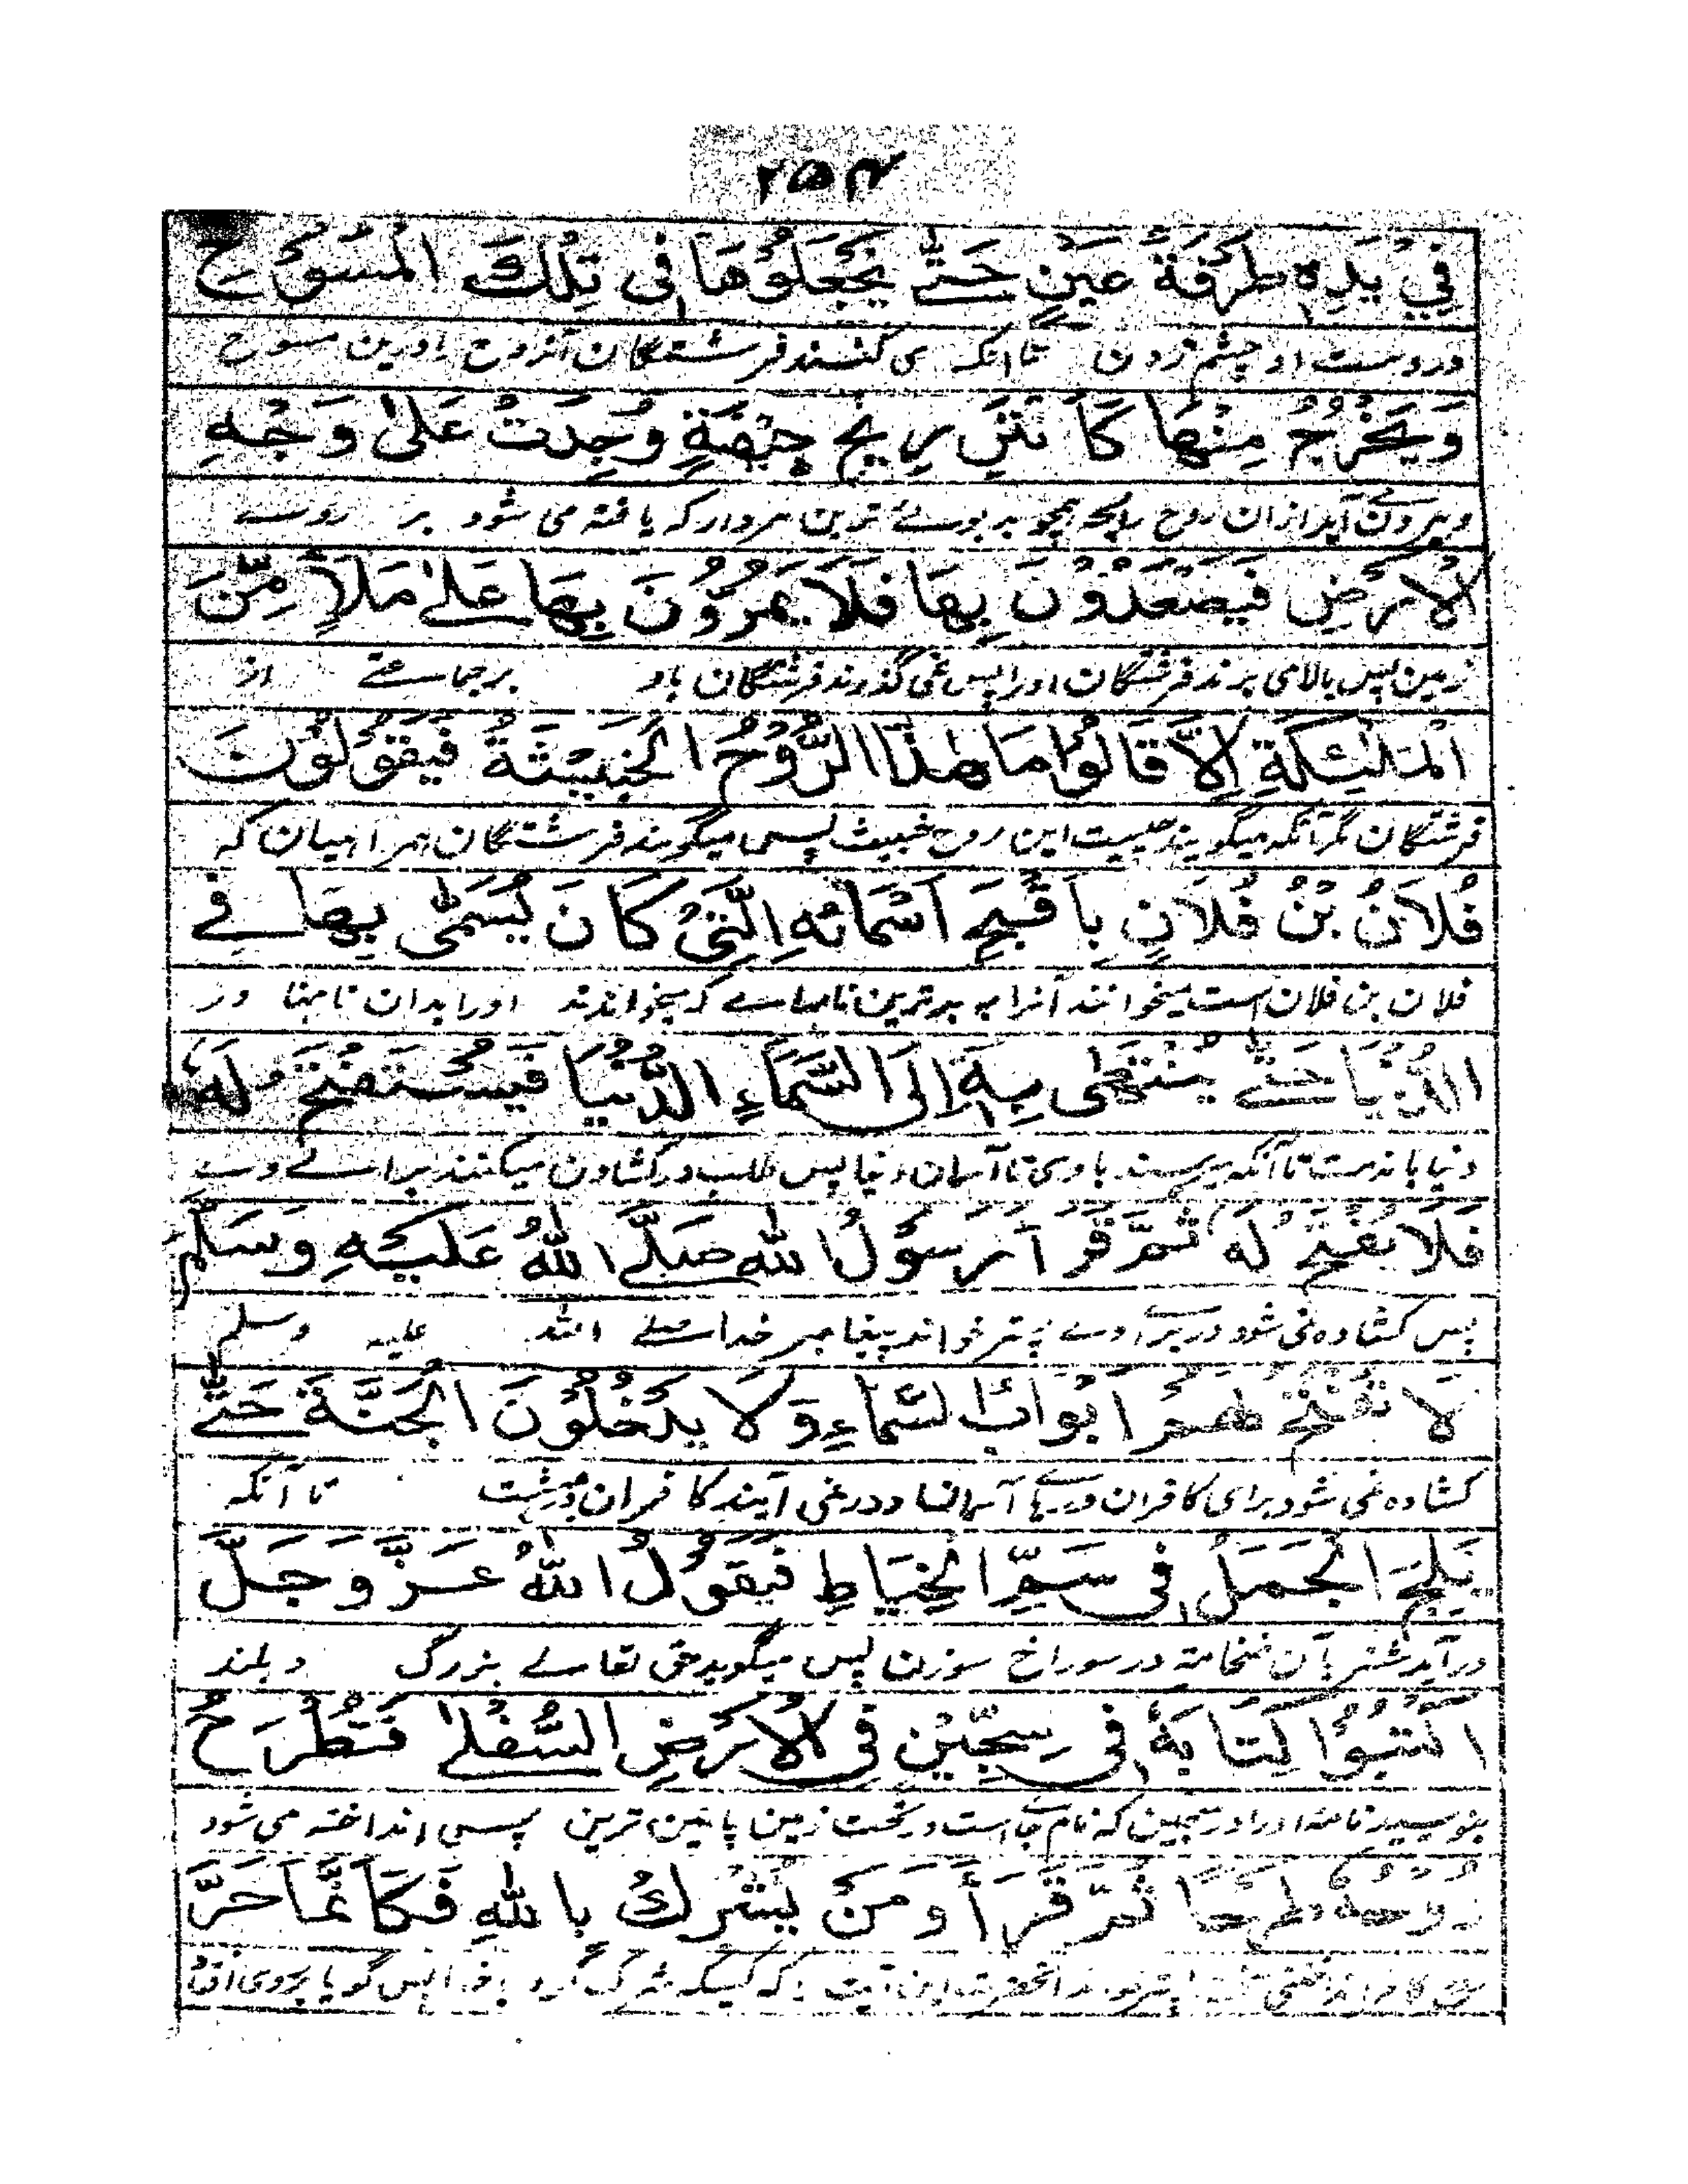 ۲۵۴
فِيْ يَدِهٖ طَرْفَةَ عَيْنٍ حَتّٰى يَجْعَلُوْهَا فِى تِلْكَ الْمُسُوْحِ
در دست او چشم زدن تا آنکه می کنند فرشتگان آنروح را درین مسوح
وَيَخْرُجُ مِنْهَا كَاَنْتَنِ رِيْحِ جِيْفَةٍ وُجِدَتْ عَلٰى وَجْهِ
و بیرون آید ازان روح رایحه همچو بد بوئے ترین مردار که یافته می شود بر روے
الْاَرْضِ فَيَصْعَدُوْنَ بِهَا فَلَا يَمُرُّوْنَ بِهَا عَلٰى مَلَأٍ مِّنَ
زمین پس بالا می برند فرشتگان اورا پس نمی گذرند فرشتگان باو بر جماعتے از
الْمَلٰٓئِكَةِ اِلَّا قَالُوْا مَا هٰذَا الرُّوْحُ الْخَبِيْثَةُ فَيَقُوْلُوْنَ
فرشتگان مگر آنکه میگویند چیست این روح خبیث پس میگویند فرشتگان همراهیان که
فُلَانُ بْنُ فُلَانٍ بِاَقْبَحِ اَسْمَائِهِ الَّتِىْ كَانَ يُسَمّٰى بِهَا فِے
فلان بن فلان است میخوانند آنرا به بدترین نامهاے که میخواندند اورا بدان نامها در
الدُّنْيَا حَتّٰى يُنْتَهٰى بِهٖ اِلَى السَّمَاءِ الدُّنْيَا فَيُسْتَفْتَحُ لَهٗ
دنیا تا آنکه باوی تا آسمان دنیا پس طلب در کشادن میکنند براے وے
فَلَا يُفْتَحُ لَهٗ ثُمَّ قَرَاَ رَسُوْلُ اللهِ صَلَّى اللهُ عَلَيْهِ وَسَلَّمَ
پس کشاده نمی شود در براے وے پستر خواند پیغامبر خدا صلے الله علیه وسلم
لَا تُفَتَّحُ لَهُمْ اَبْوَابُ السَّمَاءِ وَلَا يَدْخُلُوْنَ الْجَنَّةَ حَتّٰى
کشاده نمی شود برای کافران درہاے آسمانها و در نمی آیند کافران در بهشت تا آنکه
يَلِجَ الْجَمَلُ فِى سَمِّ الْخِيَاطِ فَيَقُوْلُ اللهُ عَزَّ وَجَلَّ
در آید شتر بآن ضخامت در سوراخ سوزن پس میگوید حق تعالے بزرگ و بلند
اكْتُبُوْا كِتَابَهٗ فِى سِجِّيْنٍ فِى الْاَرْضِ السُّفْلٰى فَتُطْرَحُ
بنویسید نامۀ اورا در سجین که نام جاے است در تحت زمین پائین ترین پس انداخته می شود
رُوْحُهٗ طَرْحًا ثُمَّ قَرَأَ وَمَنْ يُشْرِكْ بِاللهِ فَكَاَنَّمَا خَرَّ
آنحضرت این آیت که کسیکه شرک آرد بخدا پس گویا